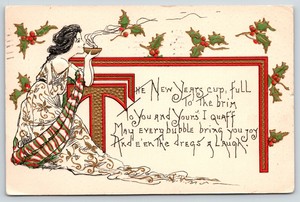 The New Years cup, full
To the brim
To You and Yours I quaff
May every bubble bring you joy
And e'en the dregs a Laugh.